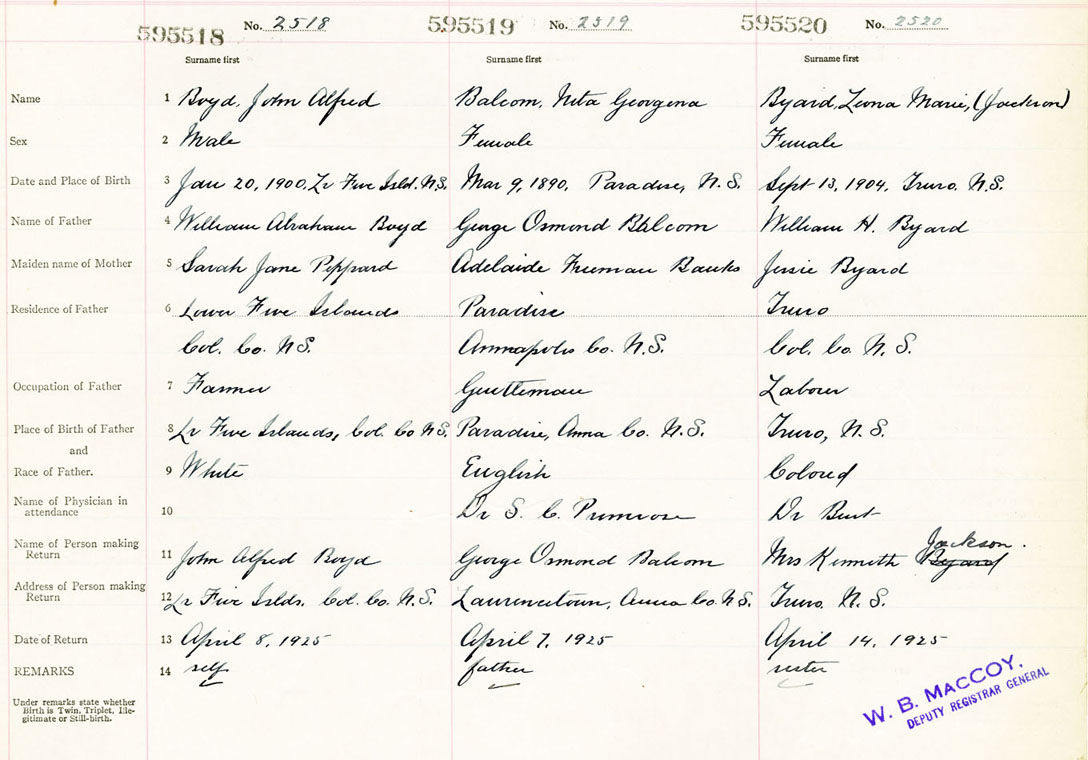 595518 No. 2518 595519 No. 2519 595520 No. 2520
Surname first Surname first Surname first
Name 1 Boyd, John Alfred Balcom, Neta Georgena Byard, Leona Marie, (Jackson)
Sex 2 Male Female Female
Date and Place of Birth 3 Jan 20, 1900, Lr Five Isld. N.S. Mar 9, 1890, Paradise, N.S. Sept 13, 1904, Truro. N.S.
Name of Father 4 William Abraham Boyd George Osmond Balcom William H. Byard
Maiden name of Mother 5 Sarah Jane Peppard Adelaide Freeman Banks Jessie Byard
Residence of Father 6 Lower Five Islands Paradise Truro
Col. Co. N.S. Annapolis Co. N.S. Col. Co. N.S.
Occupation of Father 7 Farmer Gentleman Laborer
Place of Birth of Father 8 Lr Five Islands, Col. Co N.S. Paradise, Anna Co. N.S. Truro, N.S.
and
Race of Father. 9 White English Colored
Name of Physician in
attendance 10 Dr S. C. Primrose Dr Bent
Name of Person making Jackson.
Return 11 John Alfred Boyd George Osmond Balcom Mrs Kenneth Byard
Address of Person making
Return 12 Lr Five Islds. Col. Co. N.S. Laurencetown, Anna Co. N.S. Truro. N.S.
Date of Return 13 April 8, 1925 April 7, 1925 April 14, 1925
REMARKS 14 self father sister
Under remarks state whether
Birth is Twin, Triplet, Ille-
gitimate or Still-birth.
W. B. MACCOY,
DEPUTY REGISTRAR GENERAL